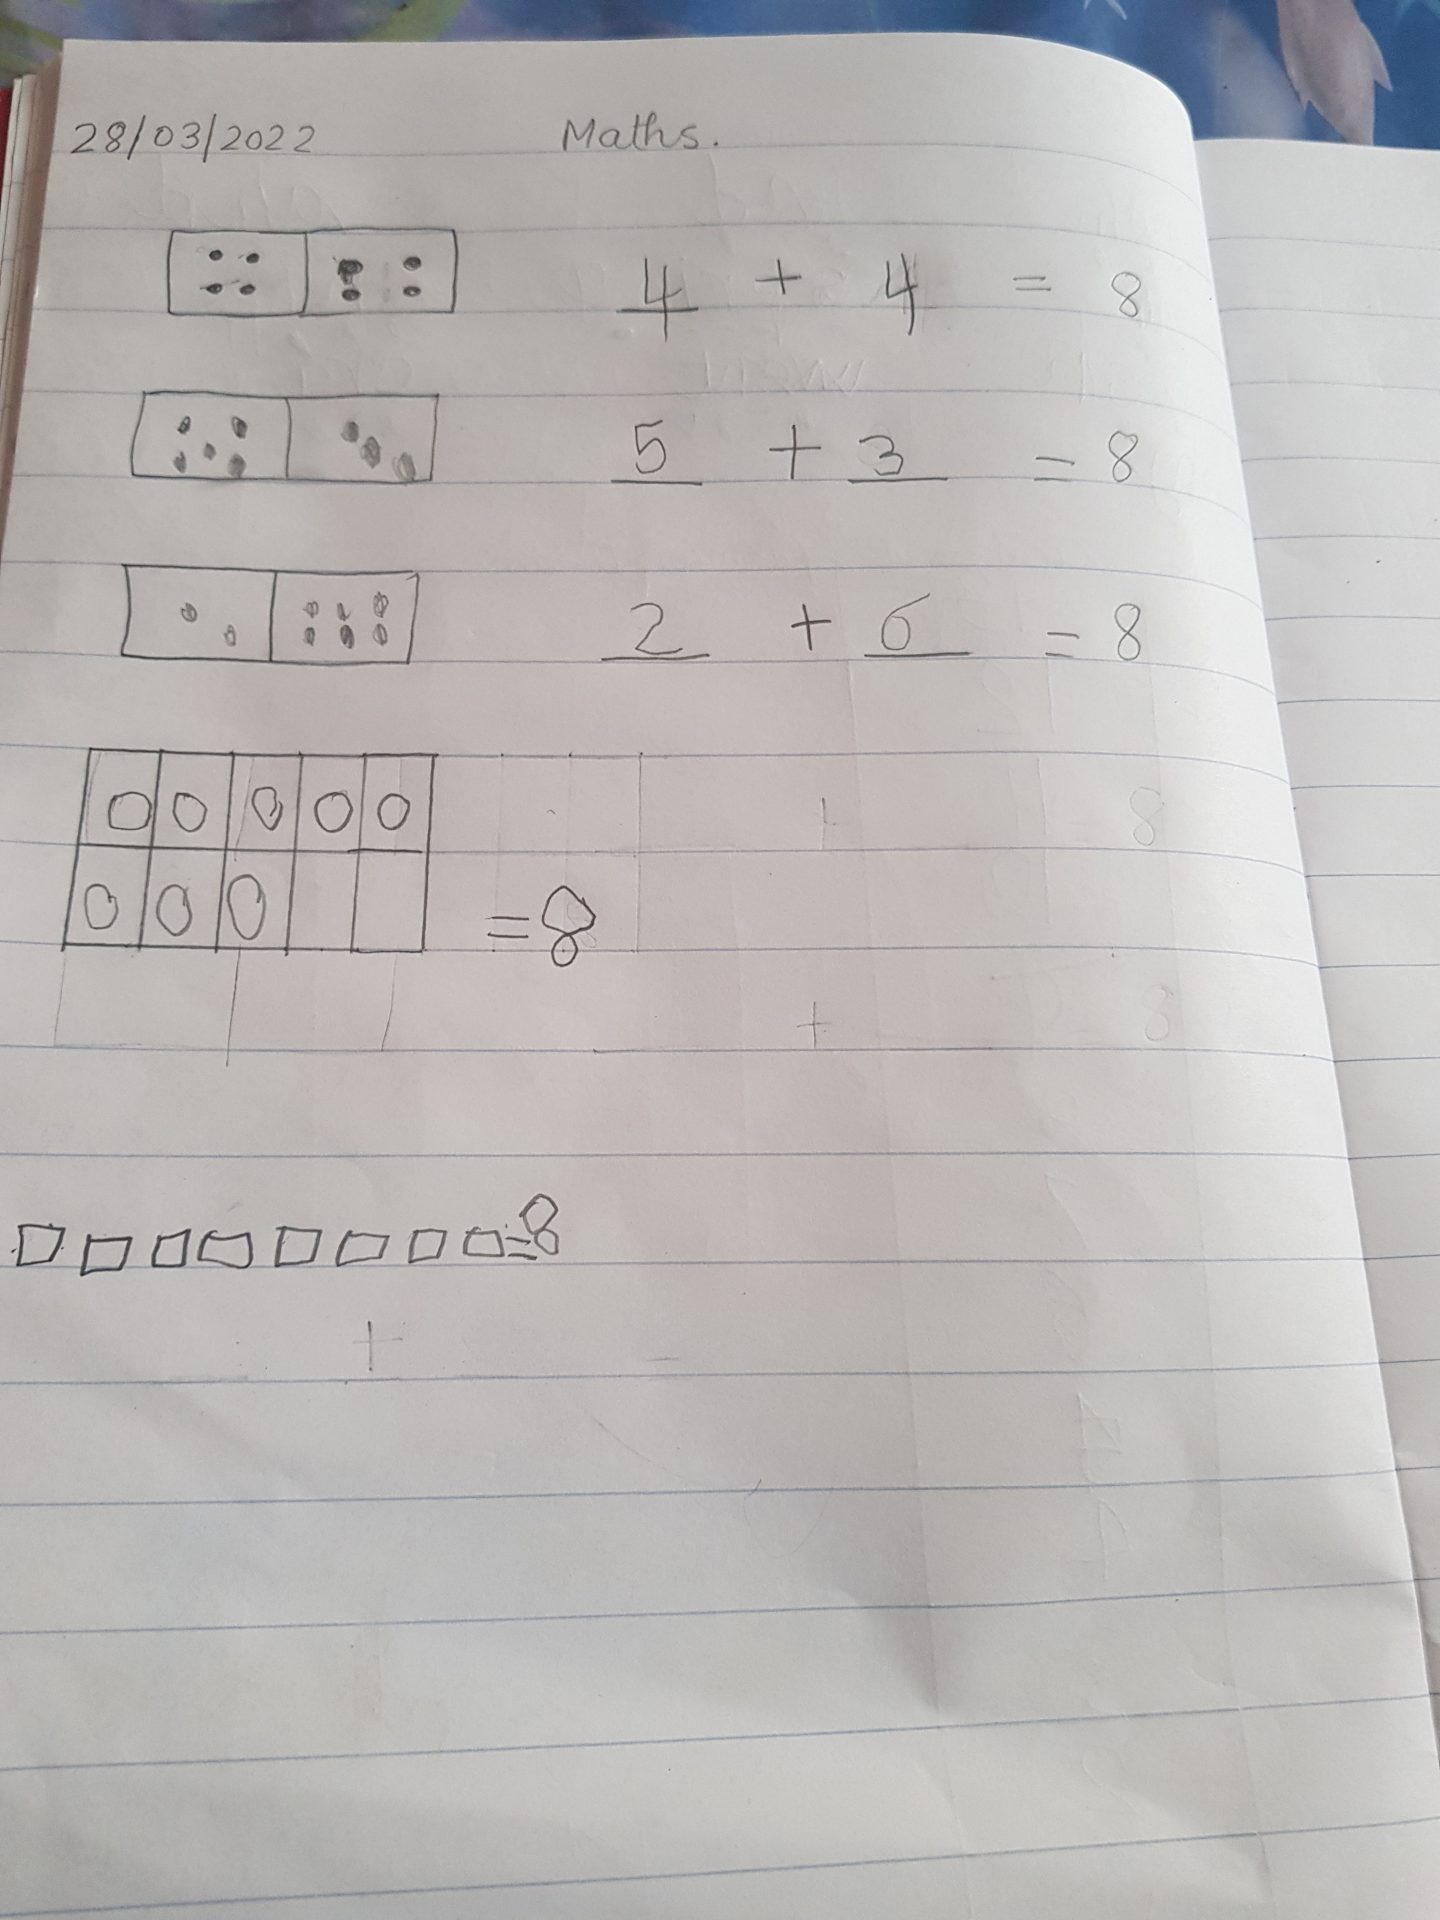 28/03/2022 Maths.
4 + 4 = 8
5 + 3 = 8
2 + 6 = 8
+ 8
= 8
+ 8
=8
+ -